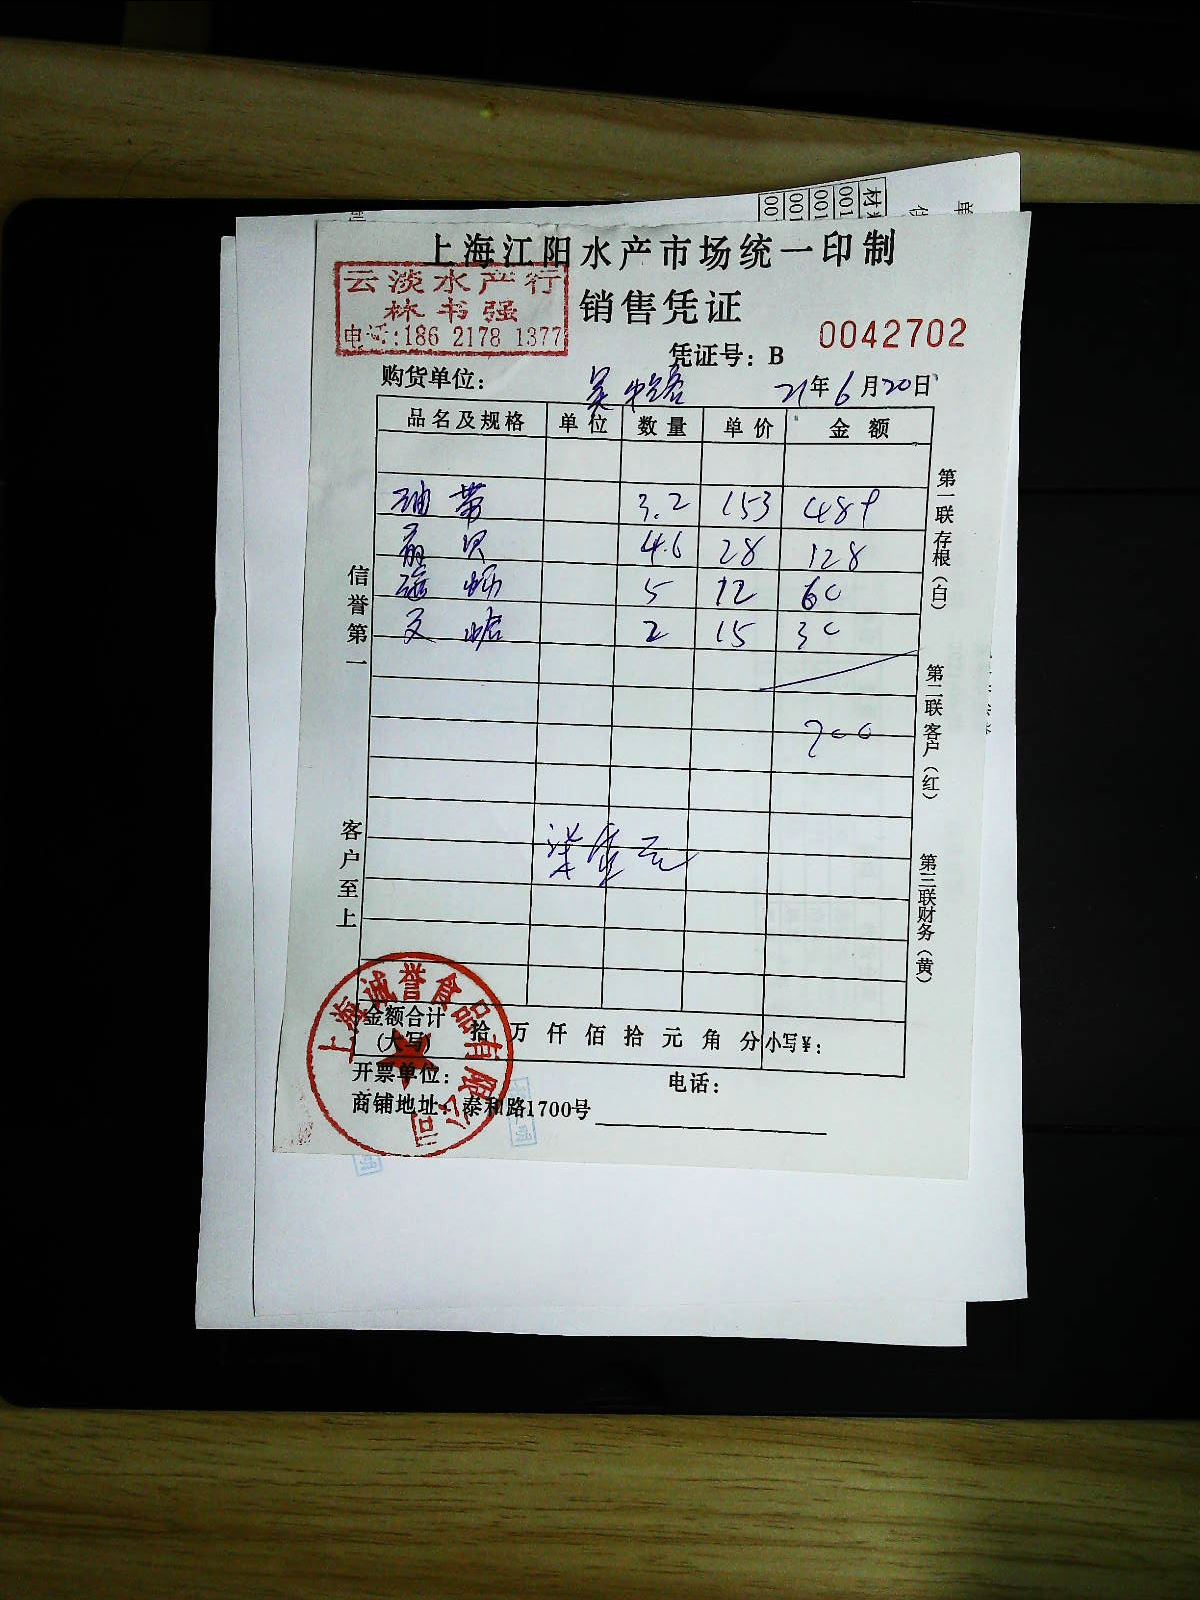 上海江阳水产市场统一印制
云淡水产行
林书强
电话:186 2178 1377
销售凭证
凭证号: B 0042702
购货单位: 21年6月20日
品名及规格 单位 数量 单价 金额
带 3.2 153 489
贝 4.6 28 128
5 12 60
文蛤 2 15 30
700
信誉第一
客户至上
第一联存根(白)
第二联客户(红)
第三联财务(黄)
上海诚誉食品有限公司
金额合计(大写) 拾万仟佰拾元角分 小写¥:
开票单位: 电话:
商铺地址: 泰和路1700号